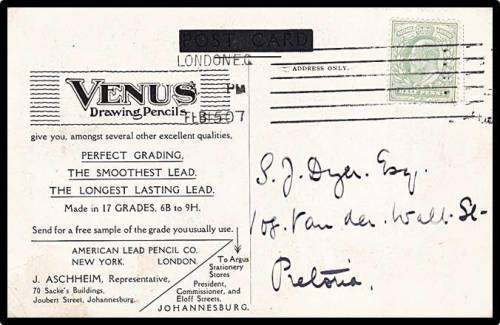 POST CARD
LONDON E.C
ADDRESS ONLY.
PM
FEB 15 07
HALF PENNY
VENUS
Drawing Pencils
give you, amongst several other excellent qualities,
PERFECT GRADING.
THE SMOOTHEST LEAD.
THE LONGEST LASTING LEAD.
Made in 17 GRADES, 6B to 9H.
Send for a free sample of the grade you usually use.
AMERICAN LEAD PENCIL CO.
NEW YORK. LONDON.
J. ASCHHEIM, Representative,
70 Sacke's Buildings,
Joubert Street, Johannesburg.
To Argus
Stationery
Stores
President,
Commissioner, and
Eloff Streets,
JOHANNESBURG.
S. J. Dyer. Esq.
Van der Walt St-
Pretoria.